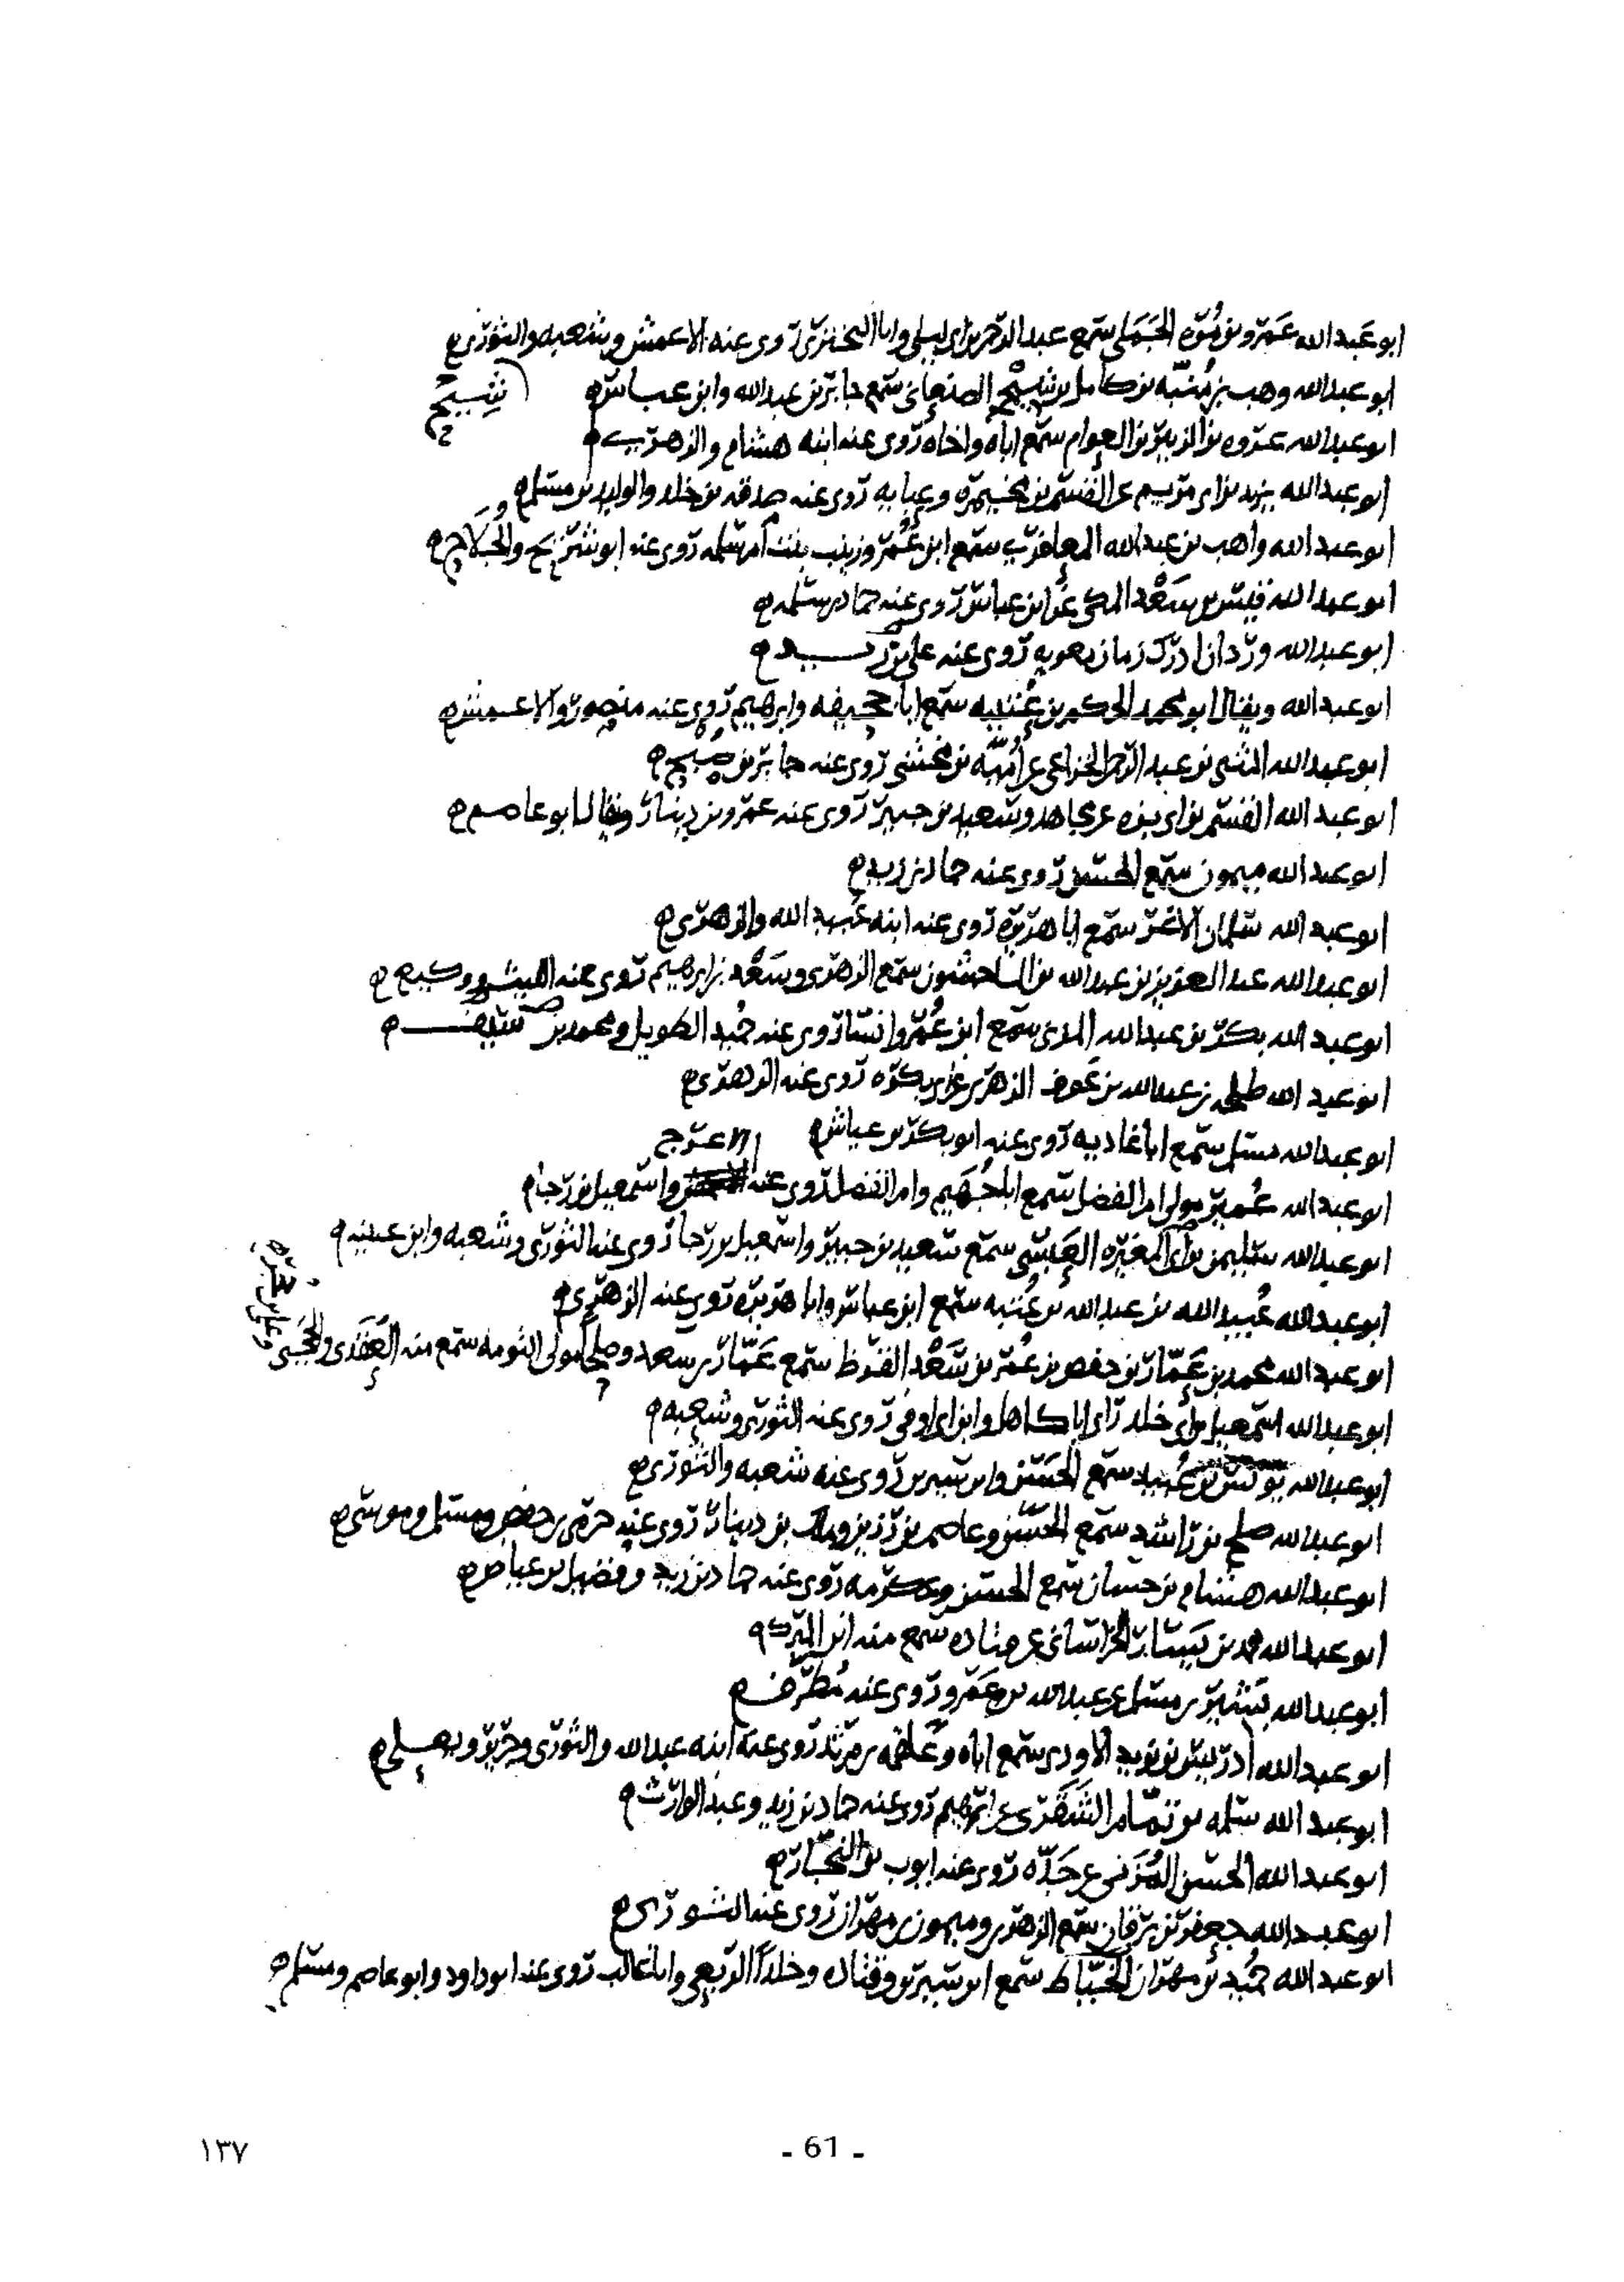 ابو عبد الله عمرو بن مُرّه الجَمَلي سمع عبد الرحمن بن ابي ليلى وابا البختري روى عنه الاعمش وشعبه والثوري
ابو عبد الله وهب بن مُنَبّه بن كامل بن شِيبج الصنعاني سمع جابر بن عبد الله وابن عباس
شيبج
ابو عبد الله عروه بن الزبير بن العوام سمع اباه واخاه روى عنه ابنه هشام والزهري
ابو عبد الله يزيد بن ابي مريم عن القسم بن مخيمره وعبايه روى عنه صدقه بن خلد والوليد بن مسلم
ابو عبد الله واهب بن عبد الله المعافري سمع ابن عُمر وزينب بنت ام سلمه روى عنه ابو شريح والجُلاح
ابو عبد الله قيس بن سَعْد المكي عن ابن عباس روى عنه حماد بن سلمه
ابو عبد الله وردان ادرك زمان معويه روى عنه علي بن
ابو عبد الله ويقال ابو محمد الحكم بن عُتيبه سمع ابا جحيفه وابرهيم روى عنه منصور والاعمش
ابو عبد الله المثنى بن عبد الرحمن الخزاعي عن اُمَيّه بن مخشي روى عنه جابر بن صُبح
ابو عبد الله القسم بن ابي بزه عن مجاهد وسعيد بن جبير روى عنه عمرو بن دينار ويقال ابو عاصم
ابو عبد الله ميمون سمع الحسن روى عنه حماد بن زيد
ابو عبد الله سلمان الاغر سمع ابا هريره روى عنه ابنه عُبيد الله والزهري
ابو عبد الله عبد العزيز بن عبد الله بن الماجشون سمع الزهري وسَعْد بن ابرهيم روى عنه الليث ووكيع
ابو عبد الله بكر بن عبد الله المزني سمع ابن عُمَر وانسا روى عنه حُميد الطويل ومحمد بن
ابو عبد الله طلحه بن عبد الله بن عَوف الزهري عن ابي بكره روى عنه الزهري
ابو عبد الله مسلم سمع ابا غاديه روى عنه ابو بكر بن عياش
الاعرج
ابو عبد الله عُمير مولى ام الفضل سمع ابا جُهَيم وام الفضل روى عنه واسمعيل بن رجا
ابو عبد الله سليمن بن ابي المغيره العبسي سمع سعيد بن جبير واسمعيل بن رجا روى عنه الثوري وشعبه وابن عيينه
ابو عبد الله عُبيد الله بن عبد الله بن عُتبه سمع ابن عباس وابا هريره روى عنه الزهري
ابو عبد الله محمد بن عَمّار بن حفص بن عُمر بن سَعْد القرظ سمع عَمّار بن سعد وصلح مولى التومه سمع منه العَقَدي والحَجَبي
وعلي بن حُجره
ابو عبد الله اسمعيل بن ابي خلد راى ابا كاهل وابن ابي اوفى روى عنه الثوري وشعبه
ابو عبد الله يونس بن عُبيد سمع الحَسَن وابن سيرين روى عنه شعبه والثوري
ابو عبد الله صلح بن راشد سمع الحسن وعاصم بن رزين وملك بن دينار روى عنه حرمي بن حفص ومسلم وموسى
ابو عبد الله هشام بن حسان سمع الحسن وعكرمه روى عنه حماد بن زيد وفضيل بن عياض
ابو عبد الله محمد بن يَسَار الخراساني عن قتاده سمع منه ابن المبرك
ابو عبد الله بَشير بن مسلم عن عبد الله بن عَمرو روى عنه مُطَرّف
ابو عبد الله ادريس بن يزيد الاودي سمع اباه وعَلقمه بن مرثد روى عنه ابنه عبد الله والثوري وجرير ويعلى
ابو عبد الله سلمه بن تمّام الشَقَري عن ابرهيم روى عنه حماد بن زيد وعبد الوارث
ابو عبد الله الحسن المُزَني عن جَدّه روى عنه ايوب بن النجّار
ابو عبد الله جعفر بن برقان سمع الزهري وميمون بن مهران روى عنه الثوري
ابو عبد الله حُميد بن مهران الخيّاط سمع ابن سيرين وقتاده وخلدًا الربعي وابا غالب روى عنه ابو داود وابو عاصم ومسلم
- 61 -
١٣٧